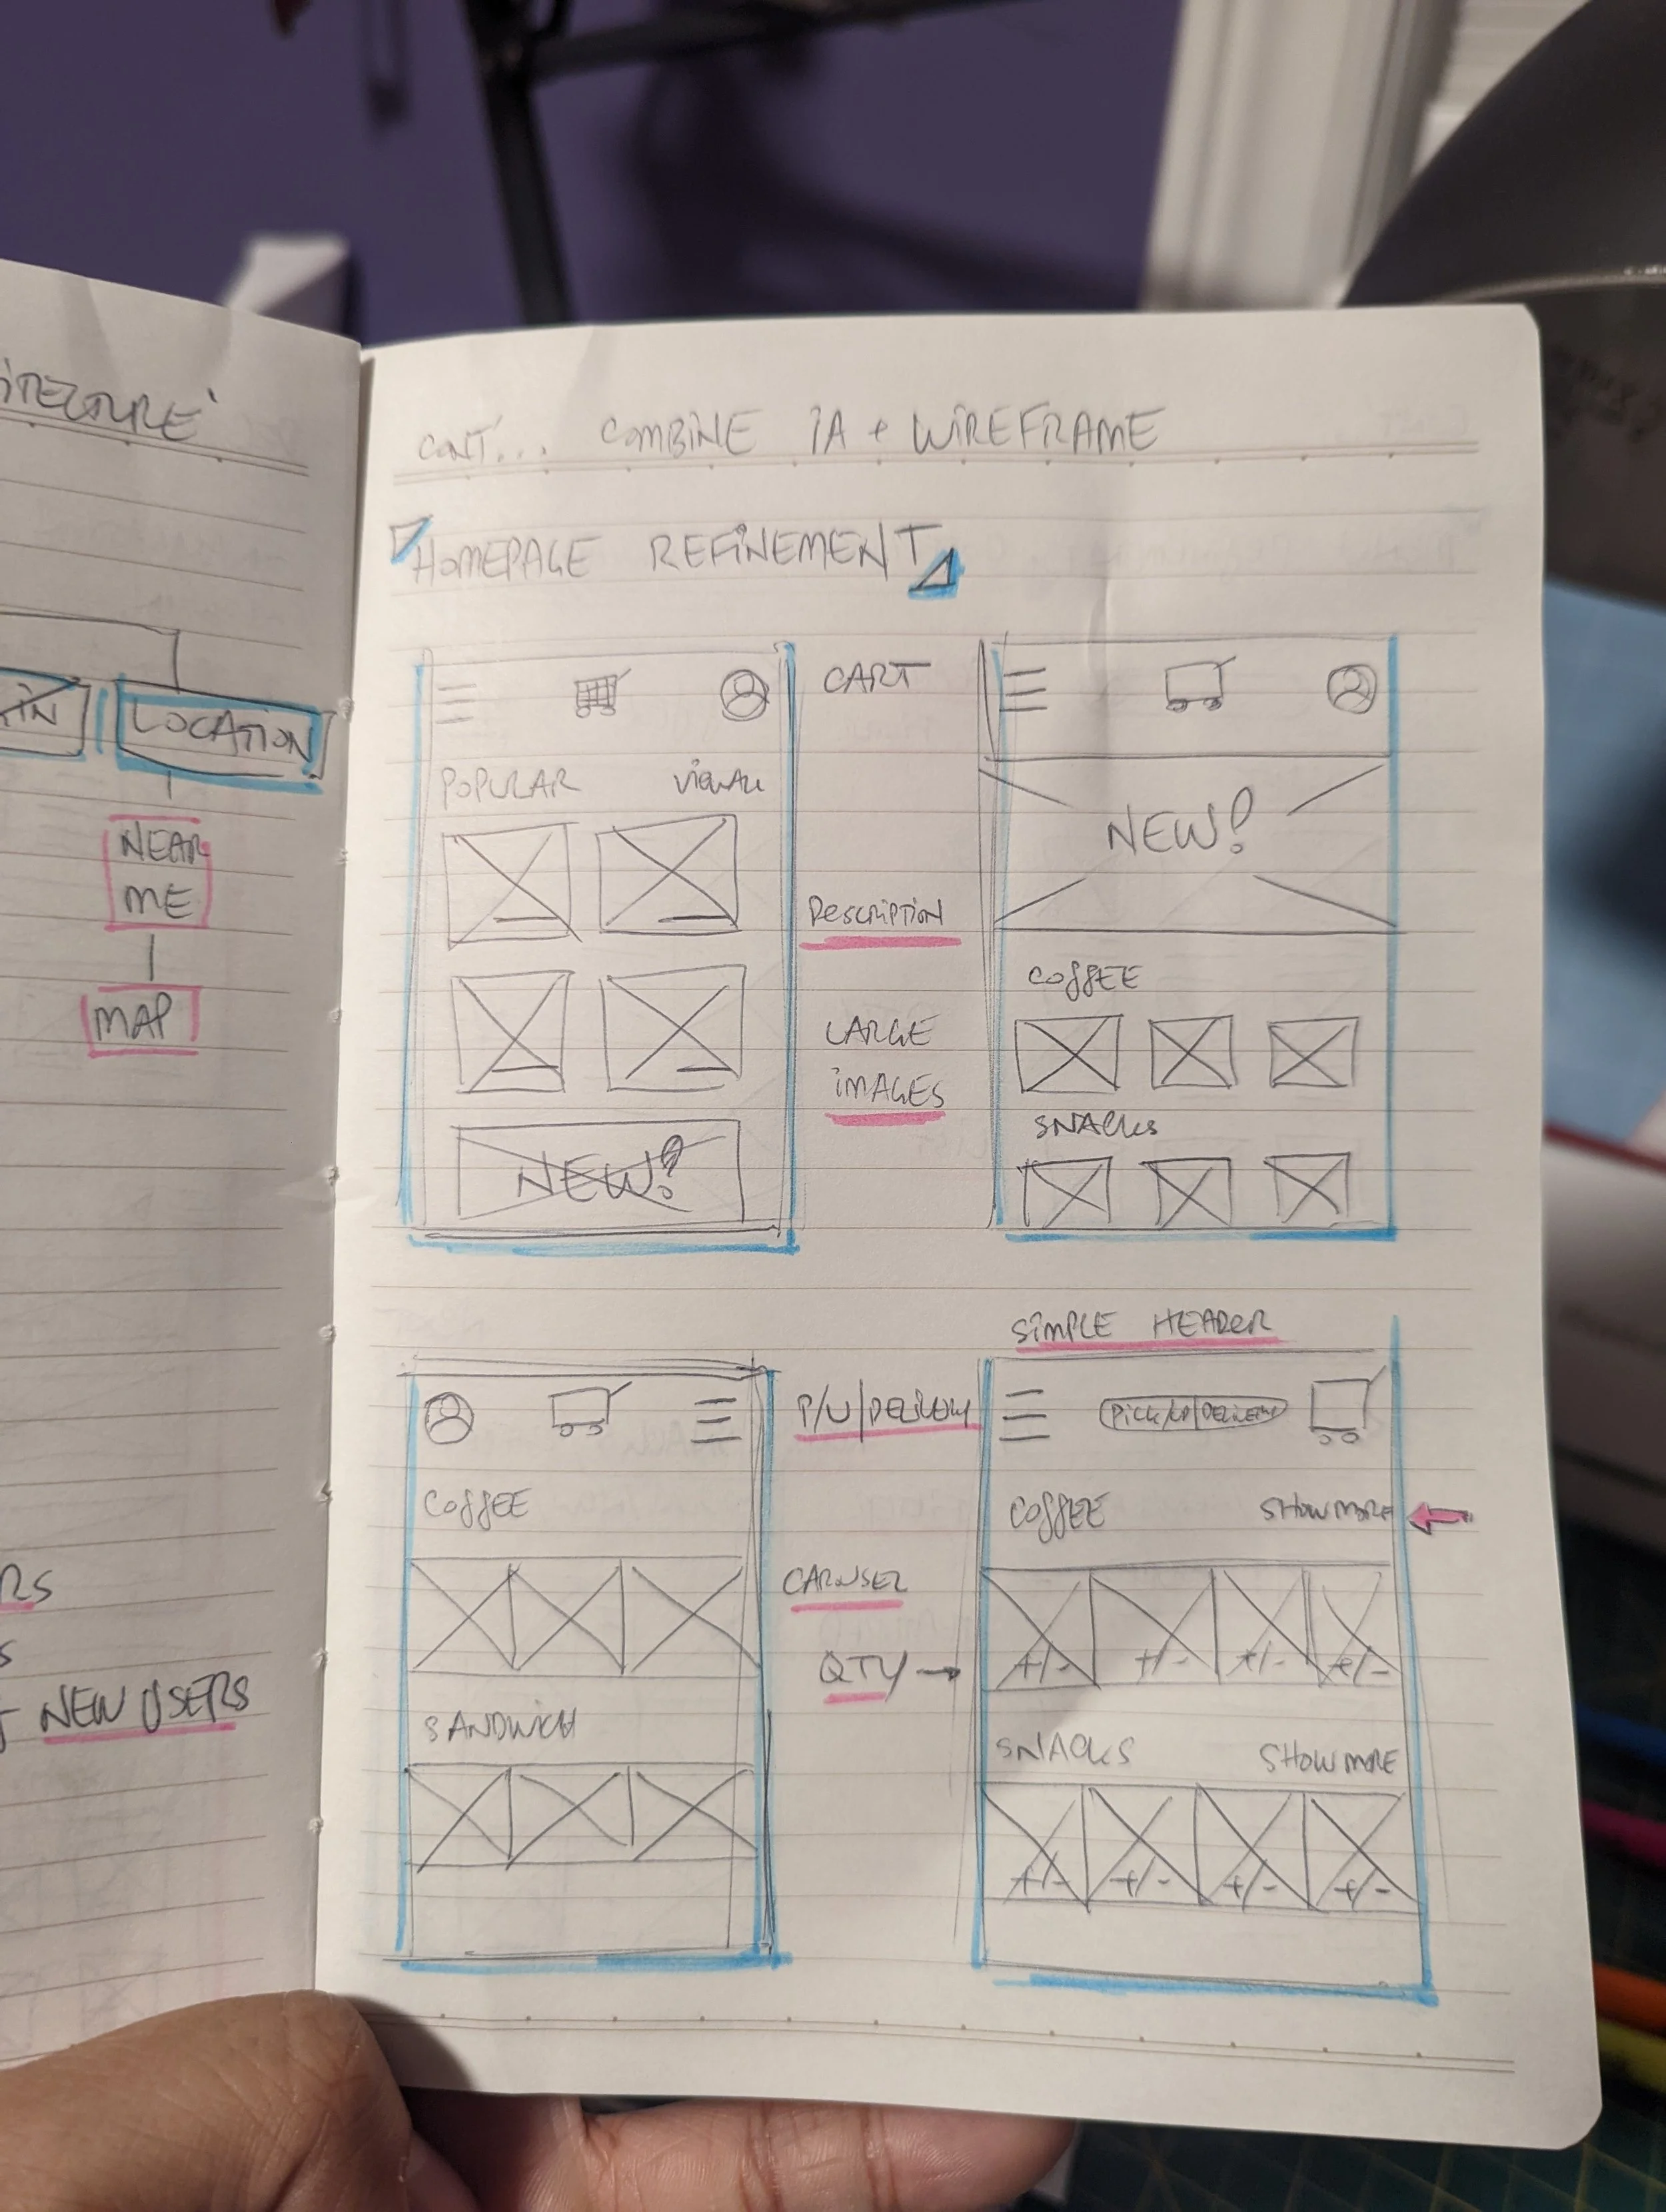 ITECTURE'
IN
LOCATION
NEAR
ME
MAP
RS
S
NEW USERS
CONT... COMBINE IA + WIREFRAME
HOMEPAGE REFINEMENT
POPULAR VIEW ALL
NEW!
CART
DESCRIPTION
LARGE
IMAGES
NEW!
COFFEE
SNACKS
COFFEE
SANDWICH
P/U/DELIVERY
CAROUSEL
QTY →
SIMPLE HEADER
PICK/UP|DELIVERY
COFFEE SHOW MORE
+/- +/- +/- +/-
SNACKS SHOW MORE
+/- +/- +/- +/-